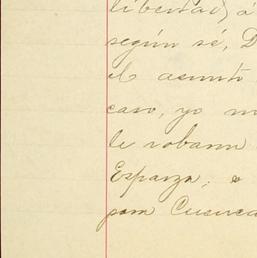 libertad) á
según sé, D
el asunto
caso, yo m
le robaron
Esparza; o
para Cuenca